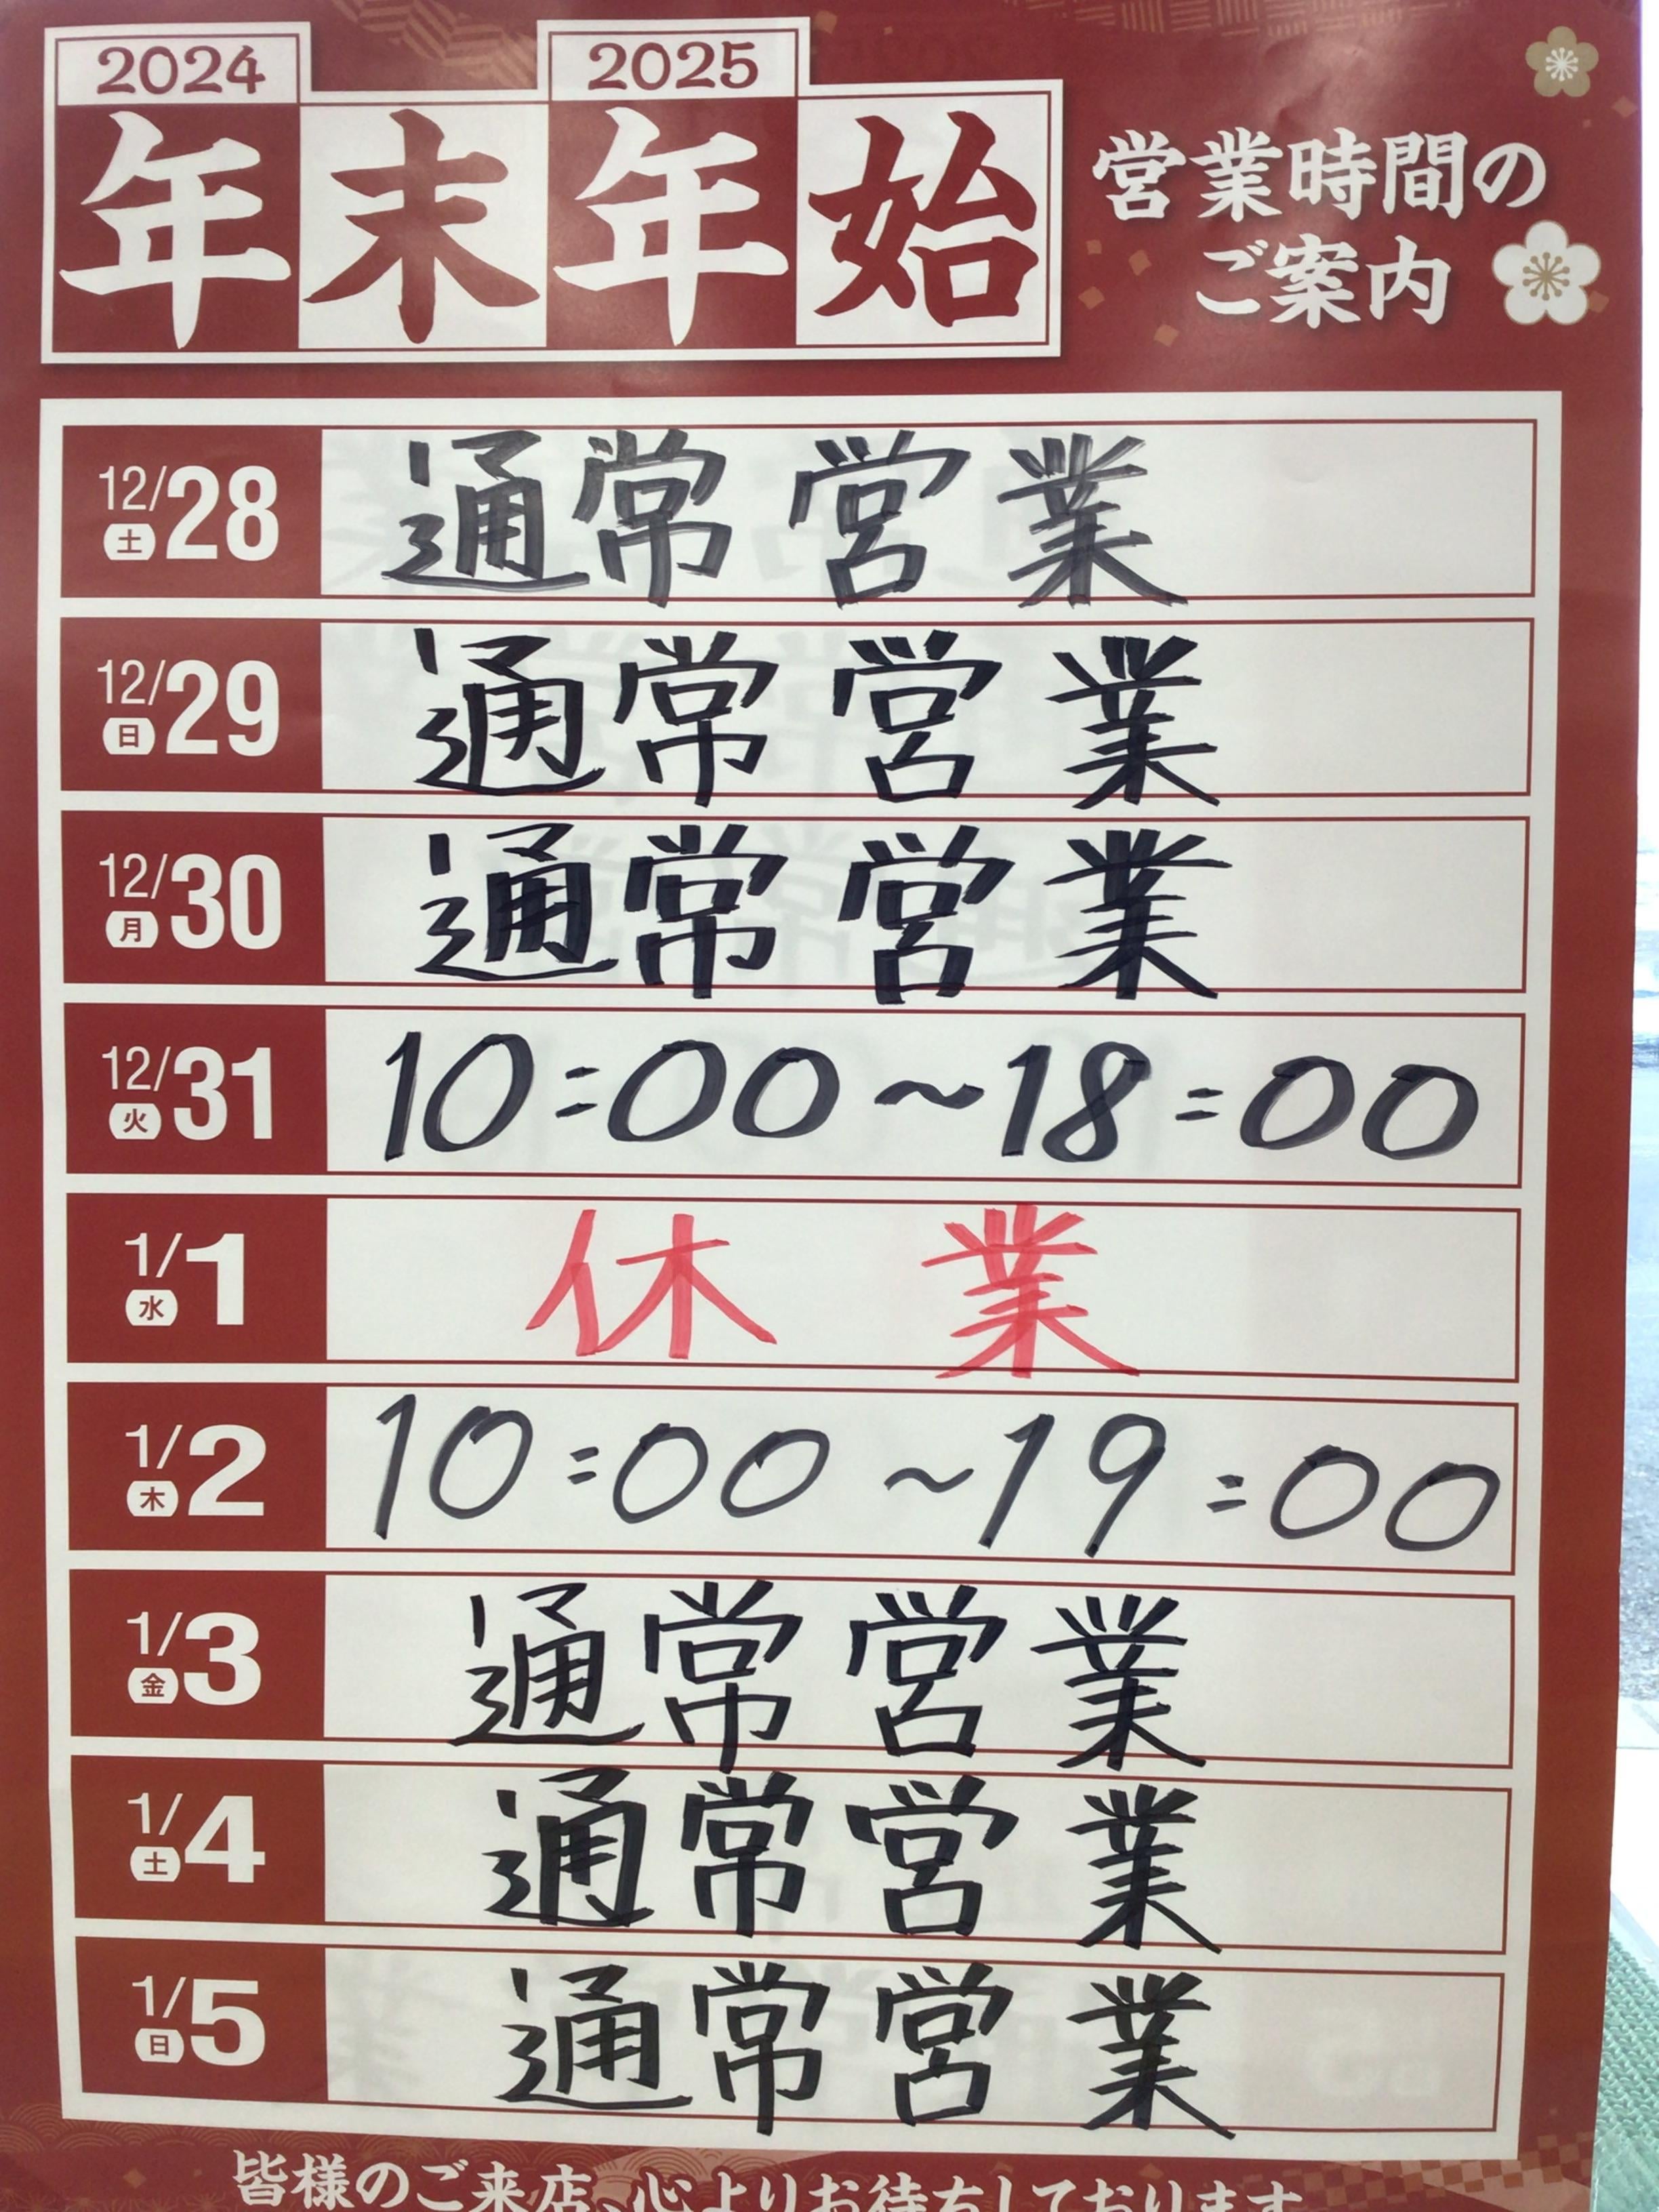 2024 2025
年末年始
営業時間の
ご案内
12/28 土 通常営業
12/29 日 通常営業
12/30 月 通常営業
12/31 火 10:00~18:00
1/1 水 休業
1/2 木 10:00~19:00
1/3 金 通常営業
1/4 土 通常営業
1/5 日 通常営業
皆様のご来店、心よりお待ちしております